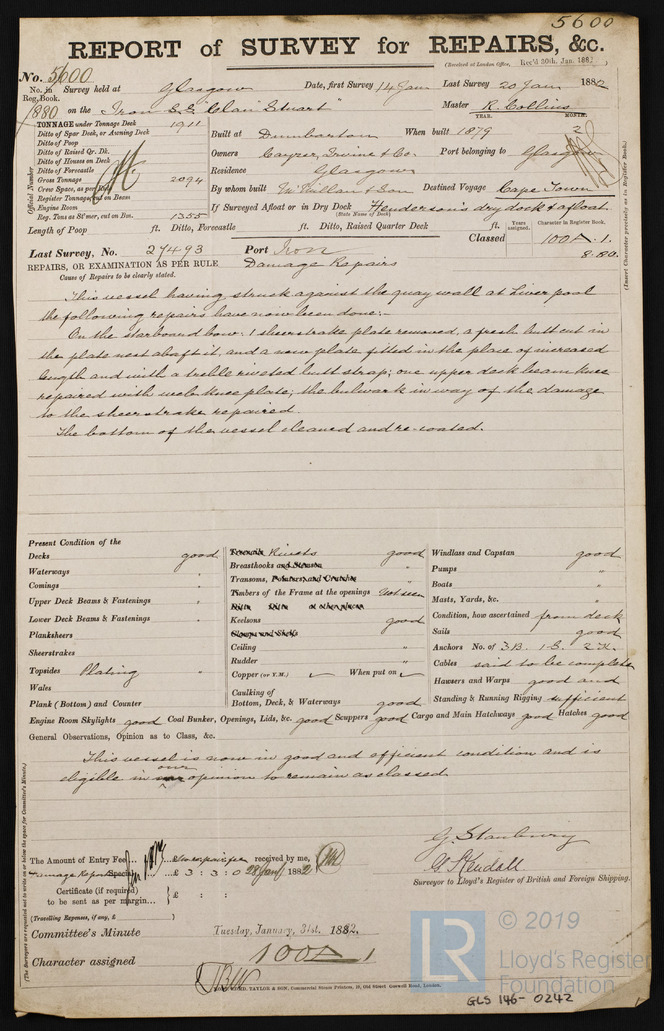 5600
REPORT of SURVEY for REPAIRS, &c.
(Received at London Office, Rec'd 30th. Jan. 1882)
No. 5600
No. in Reg. Book. Survey held at Glasgow Date, first Survey 14 Jan Last Survey 20 Jan 1882
1880 on the Iron S.S. "Clan Stuart" Master R. Collins
YEAR. MONTH.
TONNAGE under Tonnage Deck 1911
Ditto of Spar Deck, or Awning Deck
Built at Dumbarton When built 1879 2
Ditto of Poop
Ditto of Raised Qr. Dk.
Owners Cayzer, Irvine & Co. Port belonging to Glasgow
Ditto of Houses on Deck
Ditto of Forecastle
Residence Glasgow
Gross Tonnage 2094
Crew Space, as per Rule
By whom built McMillan & Son Destined Voyage Cape Town
Register Tonnage cut on Beam
Engine Room
Reg. Tons as St'mer, cut on Bm. 1355
If Surveyed Afloat or in Dry Dock Henderson's dry dock & afloat
(State Name of Dock)
Official Number
(Insert Character precisely as in Register Book.)
Length of Poop ft. Ditto, Forecastle ft. Ditto, Raised Quarter Deck ft.
Years assigned. Character in Register Book.
Last Survey, No. 27493 Port Iron Classed 100A.1.
8.80.
REPAIRS, OR EXAMINATION AS PER RULE Damage Repairs
Cause of Repairs to be clearly stated.
This vessel having struck against the quay wall at Liverpool
the following repairs have now been done:-
On the starboard bow: 1 sheerstrake plate removed, a fresh butt cut in
the plate next abaft it, and a new plate fitted in the place of increased
length and with a treble riveted butt strap; one upper deck beam knee
repaired with web knee plate; the bulwark in way of the damage
to the sheerstrake repaired.
The bottom of the vessel cleaned and re-coated.
Present Condition of the
Decks good
Waterways "
Comings "
Upper Deck Beams & Fastenings "
Lower Deck Beams & Fastenings "
Planksheers
Sheerstrakes
Topsides Plating "
Wales
Plank (Bottom) and Counter
Treenails Rivets good
Breasthooks and Stemson "
Transoms, Pointers and Crutches "
Timbers of the Frame at the openings Not seen
Ditto Ditto at other places
Keelsons good
Clamps and Shelfs
Ceiling "
Rudder "
Copper (or Y.M.) When put on
Caulking of
Bottom, Deck, & Waterways good
Windlass and Capstan good
Pumps "
Boats "
Masts, Yards, &c. "
Condition, how ascertained from deck
Sails good
Anchors No. of 3 B. 1 S. 2 K.
Cables said to be complete
Hawsers and Warps good and
Standing & Running Rigging sufficient
Engine Room Skylights good Coal Bunker, Openings, Lids, &c. good Scuppers good Cargo and Main Hatchways good Hatches good
General Observations, Opinion as to Class, &c.
This vessel is now in good and efficient condition and is
our
eligible in opinion to remain as classed.
G. Stanbury
G. Kendall
Surveyor to Lloyd's Register of British and Foreign Shipping.
The Amount of Entry Fee... £ received by me,
Damage Repair Special... £ 3 : 3 : 0 28 Jan 1882
Certificate (if required) to be sent as per margin... £ : :
(Travelling Expenses, if any, £ )
Committee's Minute Tuesday, January, 31st. 1882.
Character assigned 100A 1
TAYLOR & SON, Commercial Steam Printers, 19, Old Street Goswell Road, London.
(The Surveyors are requested not to write on or below the space for Committee's Minute.)
LR © 2019
Lloyd's Register
Foundation
GLS 146-0242